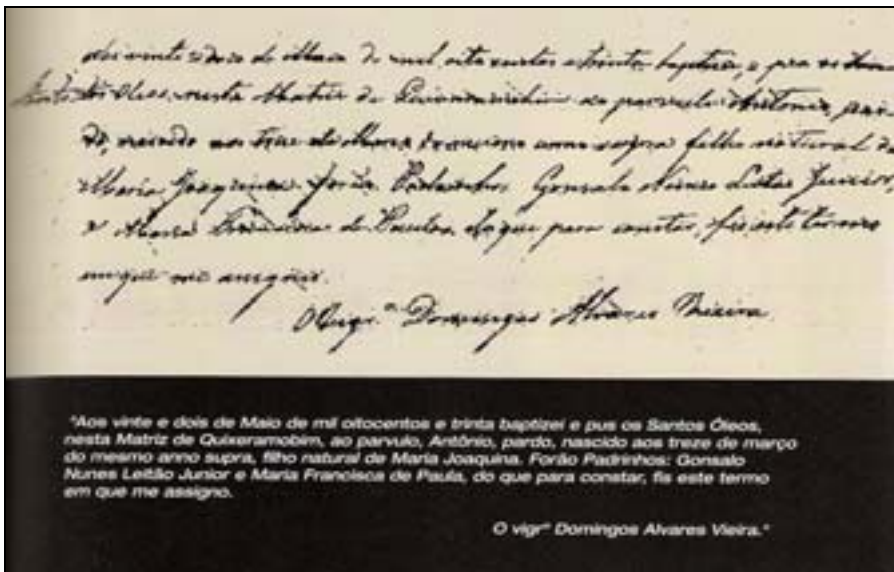 Aos vinte e dois de Maio de mil oito centos e trinta baptizei, e pus os
Santos Oleos, nesta Matriz de Quixeramobim ao parvulo Antonio, par-
do, nascido aos treze de Março do mesmo anno supra filho natural de
Maria Joaquina. Forão Padrinhos Gonsalo Nunes Leitão Junior,
e Maria Francisca de Paula, do que para constar, fis este termo
em que me assigno.
O Vigr.º Domingos Alvares Vieira
"Aos vinte e dois de Maio de mil oitocentos e trinta baptizei e pus os Santos Óleos,
nesta Matriz de Quixeramobim, ao parvulo, Antônio, pardo, nascido aos treze de março
do mesmo anno supra, filho natural de Maria Joaquina. Forão Padrinhos: Gonsalo
Nunes Leitão Junior e Maria Francisca de Paula, do que para constar, fis este termo
em que me assigno.
O vigrº Domingos Alvares Vieira."